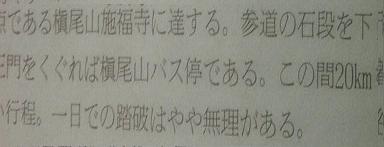 点である槇尾山施福寺に達する。参道の石段を下
門をくぐれば槇尾山バス停である。この間20km
行程。一日での踏破はやや無理がある。